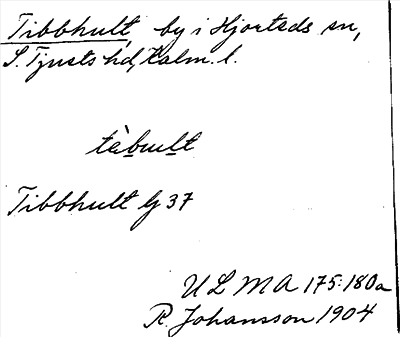 Tibbhult, by i Hjorteds sn,
S. Tjusts hd, Kalm. l.
tèbult
Tibbhult G 37
ULMA 175:180a
R. Johansson 1904